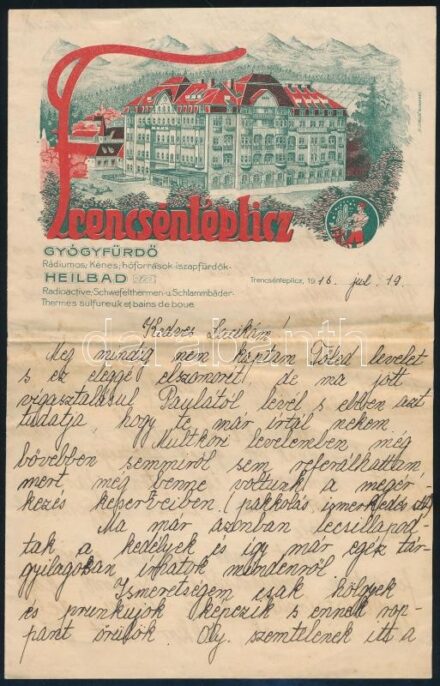 Trencsénteplicz
GYÓGYFÜRDŐ
Rádiumos, Kénes, hőforrások-iszapfürdők-
HEILBAD
Radioactive, Schwefelthermen-u. Schlammbäder-
Thermes sulfureux et bains de boue.
Trencsénteplicz, 1916. jul. 19.
Kedves Lacikám!
Meg mindig nem kaptam Tőled levelet
s ez eléggé elszomorit, de ma jött
vigasztalásul Paulától levél s ebben azt
tudatja, hogy te már irtál nekem.
Multkori levelemben még
bővebben semmiről sem referálhattam
mert még benne voltunk a megér-
kezés keserveiben. (pakkolás, ismerkedés stb)
Ma már azonban lecsillapod-
tak a kedélyek és így már egész tár-
gyilagosan irhatok mindenről.
Ismeretségem csak hölgyek
és prunkujok képezik s ennek rop-
pant örülök. Oly szemtelenek itt a
darabanth